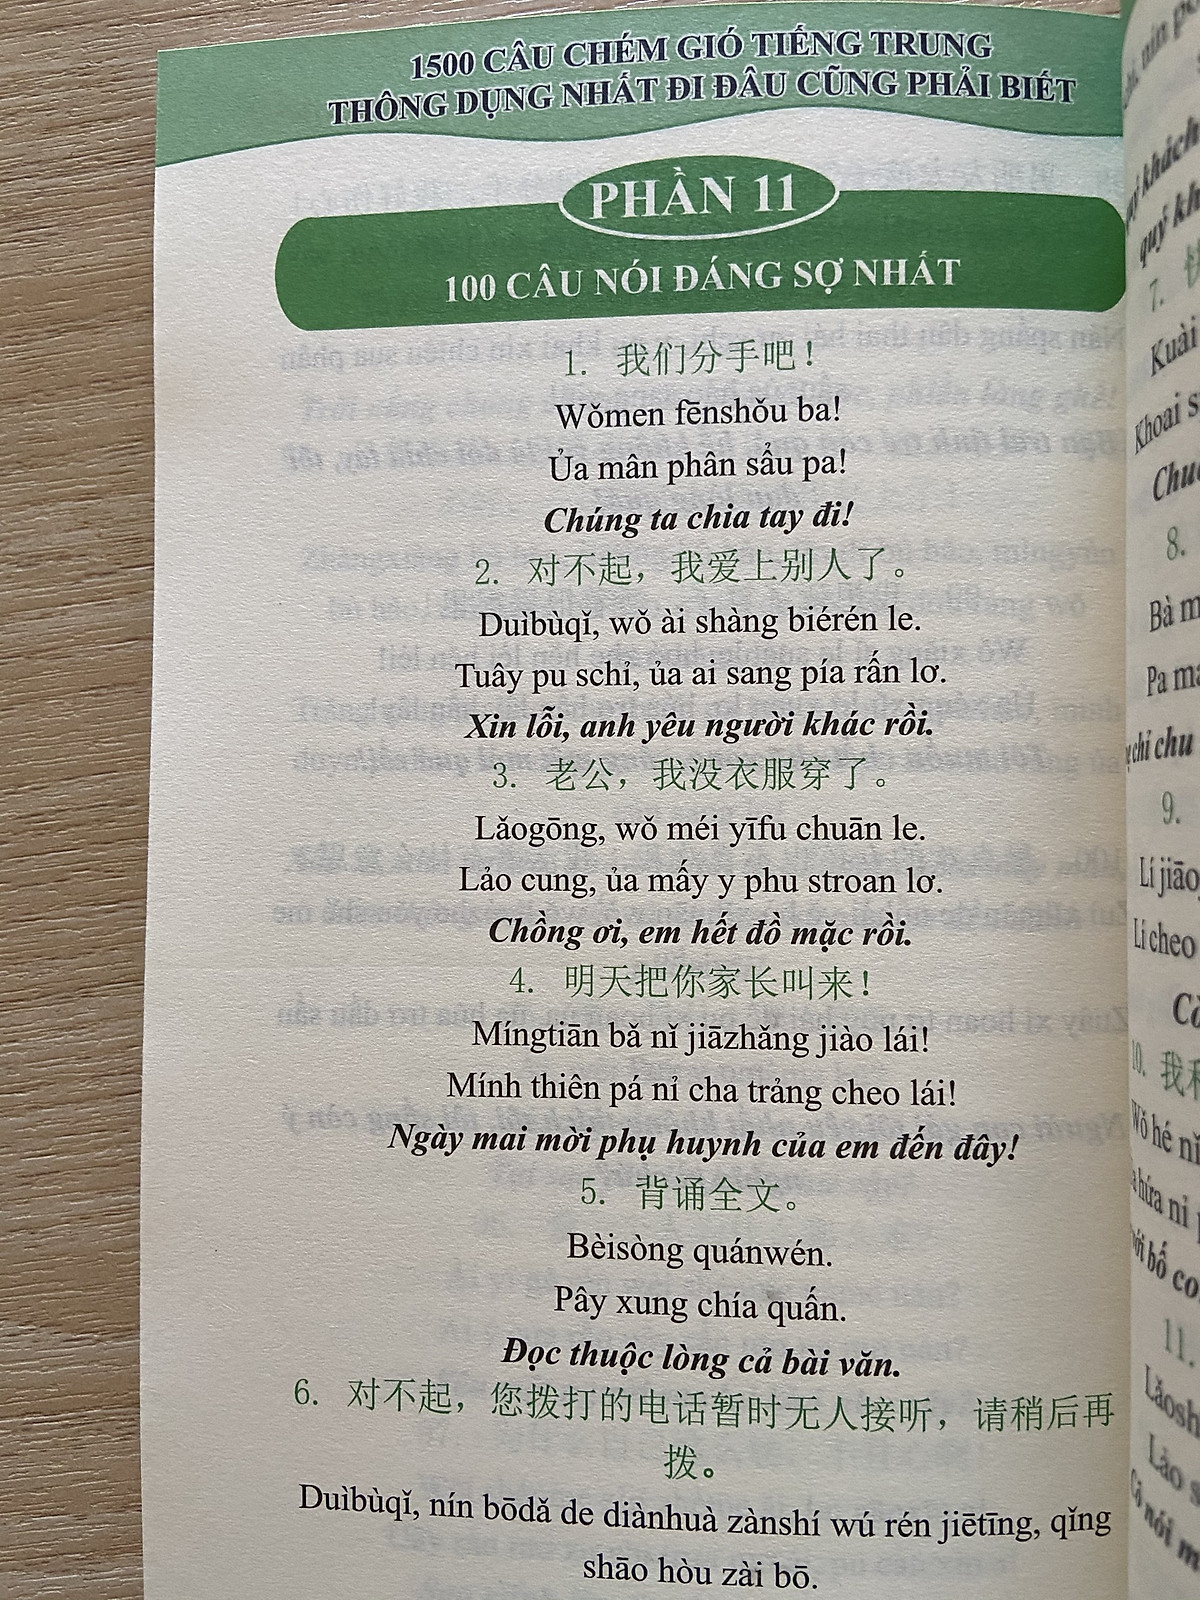 1500 CÂU CHÉM GIÓ TIẾNG TRUNG
THÔNG DỤNG NHẤT ĐI ĐÂU CŨNG PHẢI BIẾT
PHẦN 11
100 CÂU NÓI ĐÁNG SỢ NHẤT
1. 我们分手吧！
Wǒmen fēnshǒu ba!
Ủa mân phân sẩu pa!
Chúng ta chia tay đi!
2. 对不起，我爱上别人了。
Duìbùqǐ, wǒ ài shàng biérén le.
Tuây pu schỉ, ủa ai sang pía rấn lơ.
Xin lỗi, anh yêu người khác rồi.
3. 老公，我没衣服穿了。
Lǎogōng, wǒ méi yīfu chuān le.
Lảo cung, ủa mấy y phu stroan lơ.
Chồng ơi, em hết đồ mặc rồi.
4. 明天把你家长叫来！
Míngtiān bǎ nǐ jiāzhǎng jiào lái!
Mính thiên pá nỉ cha trảng cheo lái!
Ngày mai mời phụ huynh của em đến đây!
5. 背诵全文。
Bèisòng quánwén.
Pây xung chía quấn.
Đọc thuộc lòng cả bài văn.
6. 对不起，您拨打的电话暂时无人接听，请稍后再
拨。
Duìbùqǐ, nín bōdǎ de diànhuà zànshí wú rén jiētīng, qǐng
shāo hòu zài bō.
quý kh
7.
Kuài
Khoai s
8.
Bà m
Pa ma
chỉ chu
9.
Lí jiāo
Li cheo
10. 我和
Wǒ hé nǐ
hứa nỉ
bố co
11.
Lǎosh
Lảo s
nói m